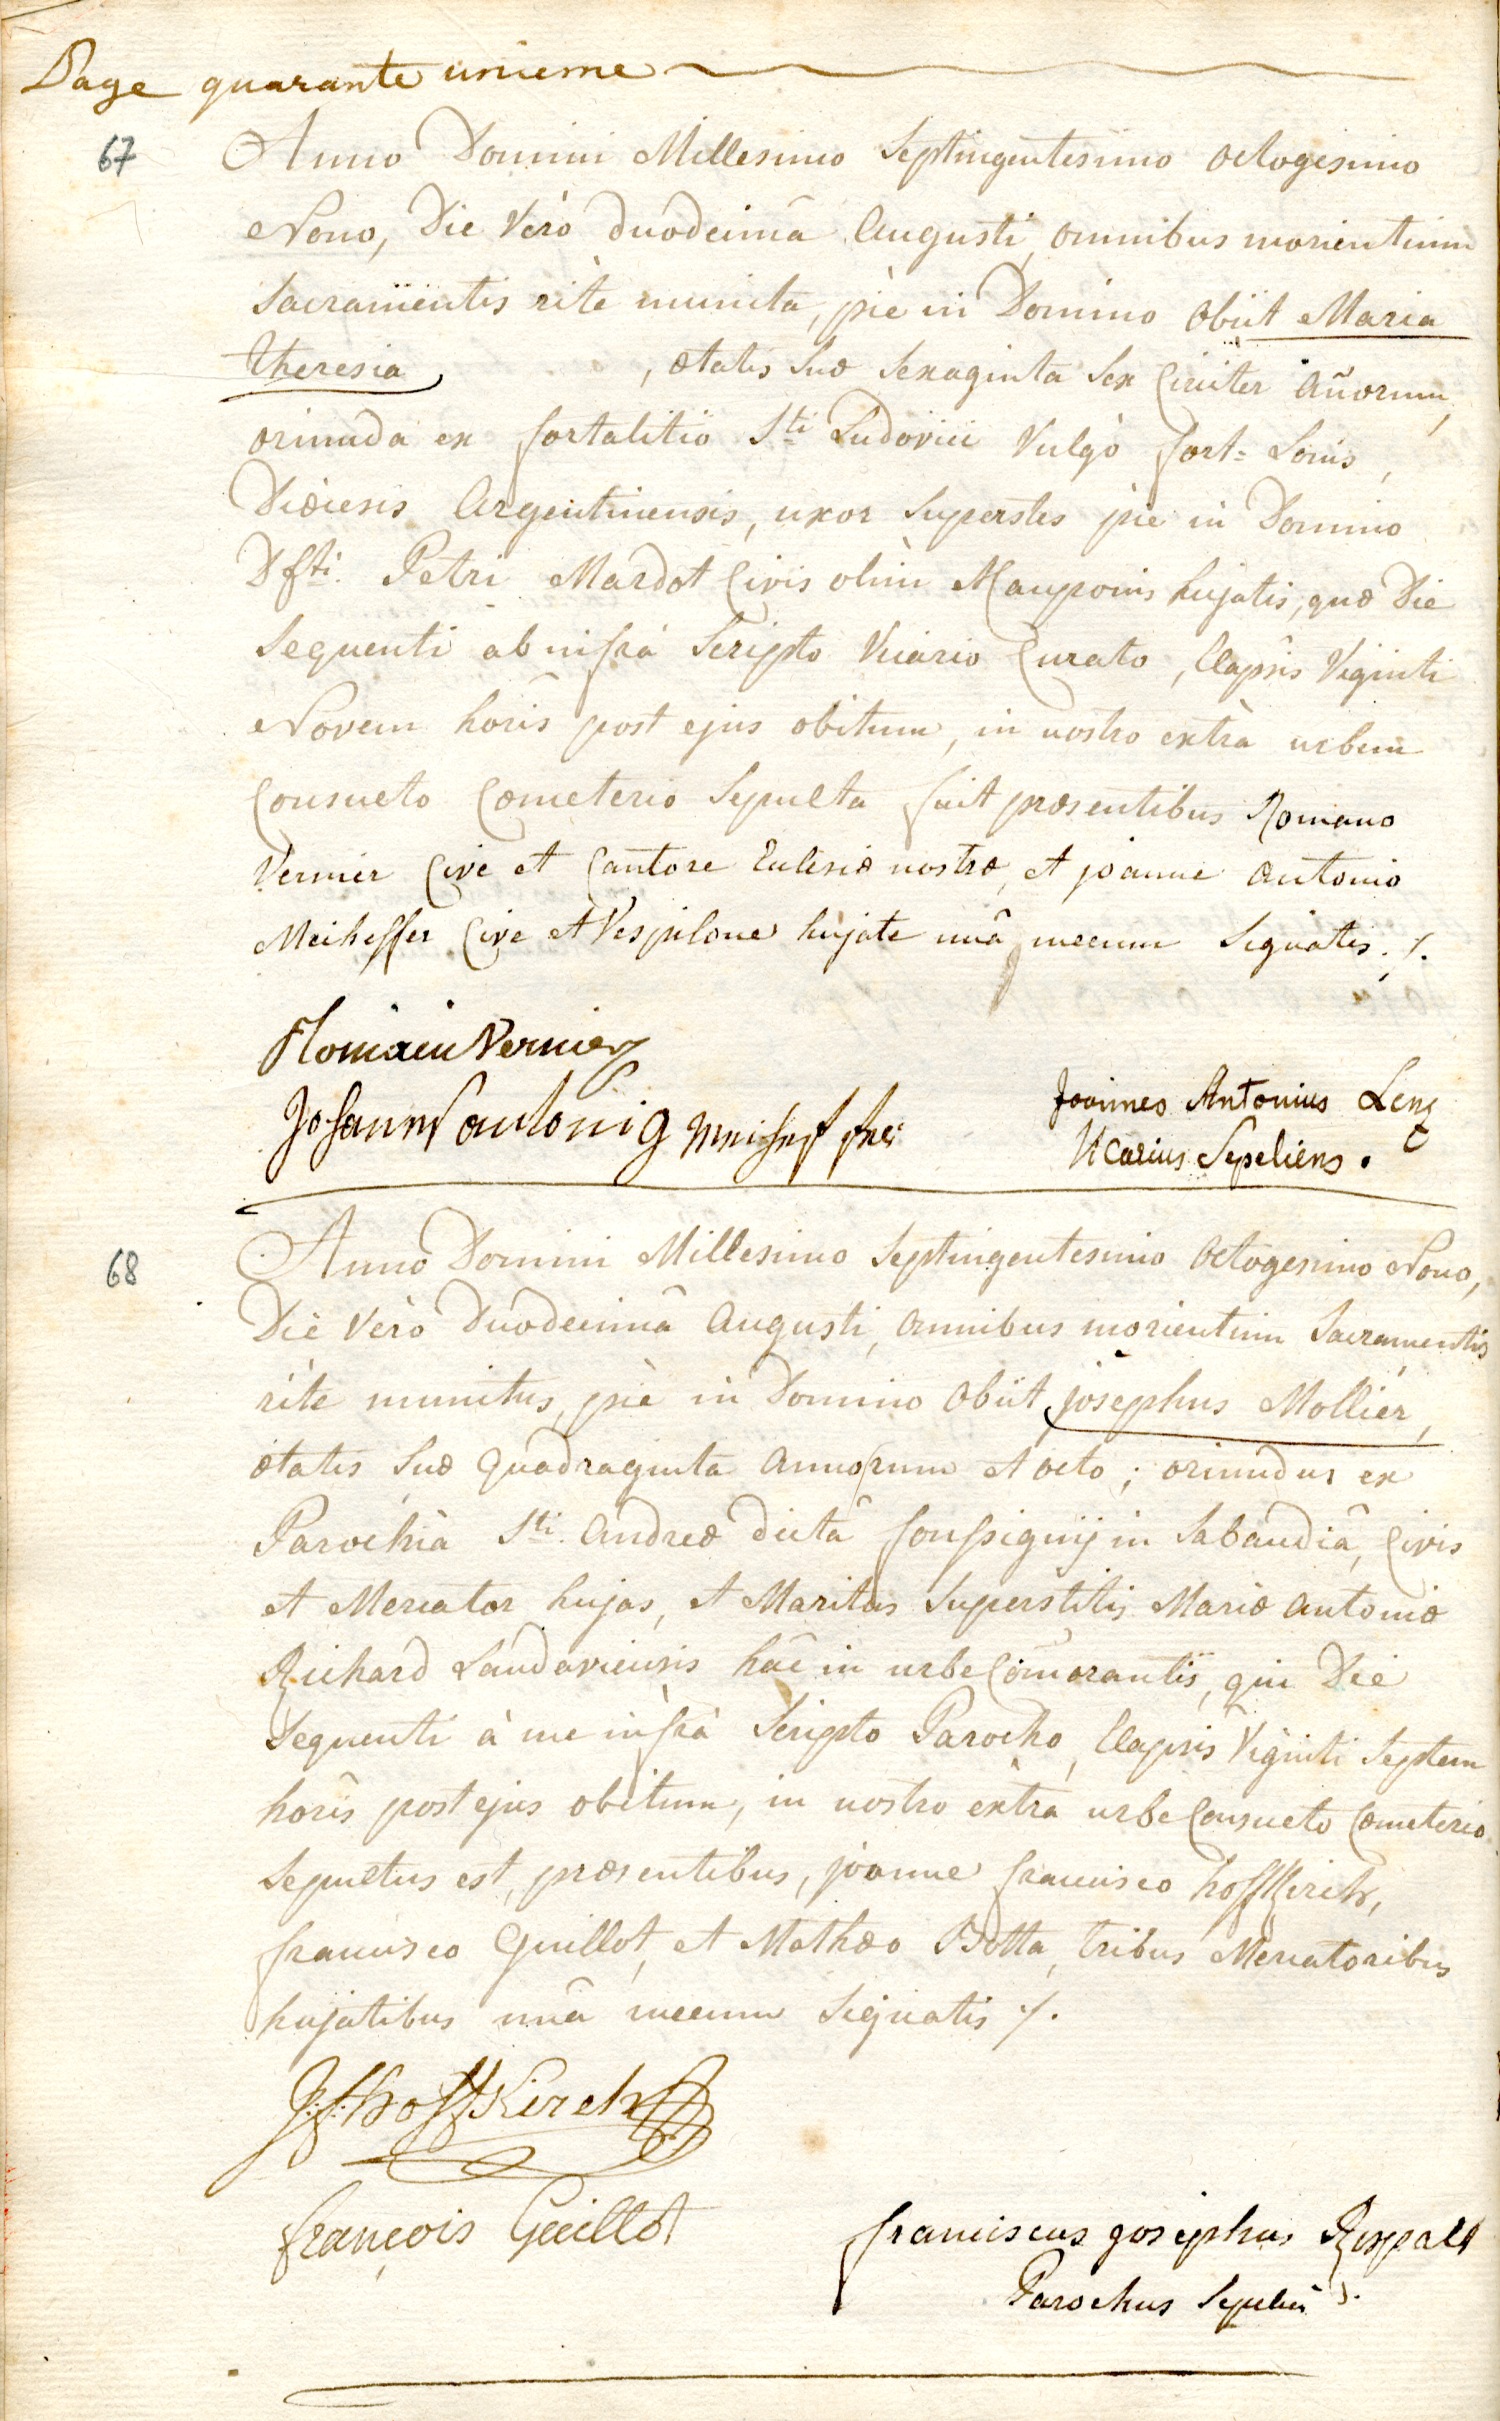 Page quarante unieme
67 Anno Domini Millesimo Septingentesimo octogesimo
Nono, Die Verò duodecimâ Augusti, omnibus morientium
Sacramentis ritè munita, piè in Domino obiit Maria
Theresia , ætatis suæ sexaginta sex Circiter añorum,
oriunda ex fortalitio Sti Ludovici Vulgò fort=Louis,
Diœcesis Argentinensis, uxor superstes piè in Domino
Dfti. Petri Mardot Civis olim hujatis, quæ Die
sequenti ab infrà Scripto Vicario Curato, Elapsis Viginti
Novem horis post ejus obitum, in nostro extrà urbem
Consueto Cœmeterio Sepulta fuit præsentibus Romano
Vernier Cive et Cantore Ecclesiæ nostræ, et joanne Antonio
Meiheffer Cive et Vespilone hujate unâ mecum Signatis ./.
Romain Vernier
Johannes antonig Meiheffer
Joannes Antonius Lenz
Vicarius Sepeliens.
68 Anno Domini Millesimo Septingentesimo Octogesimo Nono,
Die Verò Duodecimâ Augusti, omnibus morientium Sacramentis
ritè munitus, piè in Domino obiit josephus Mollier,
ætatis suæ quadraginta annorum et octo; oriundus ex
Parochiâ Sti. Andreæ dictâ in Sabaudiâ, Civis
et Mercator hujas, et Maritus Superstitis Mariæ Antoniæ
Richard Landaviensis hac in urbe Com̃orantis, qui Die
sequenti à me infrà Scripto Parocho, Elapsis Viginti Septem
horis post ejus obitum, in nostro extrà urbe Consueto Cœmeterio
sepultus est, præsentibus, joanne francisco hoffkirch,
francisco Guillot, et Mathæo Botta, tribus Mercatoribus
hujatibus unâ mecum Signatis ./.
J: f: hoffKirch
françois Guillot
franciscus josephus Rospalt
Parochus Sepeliens.